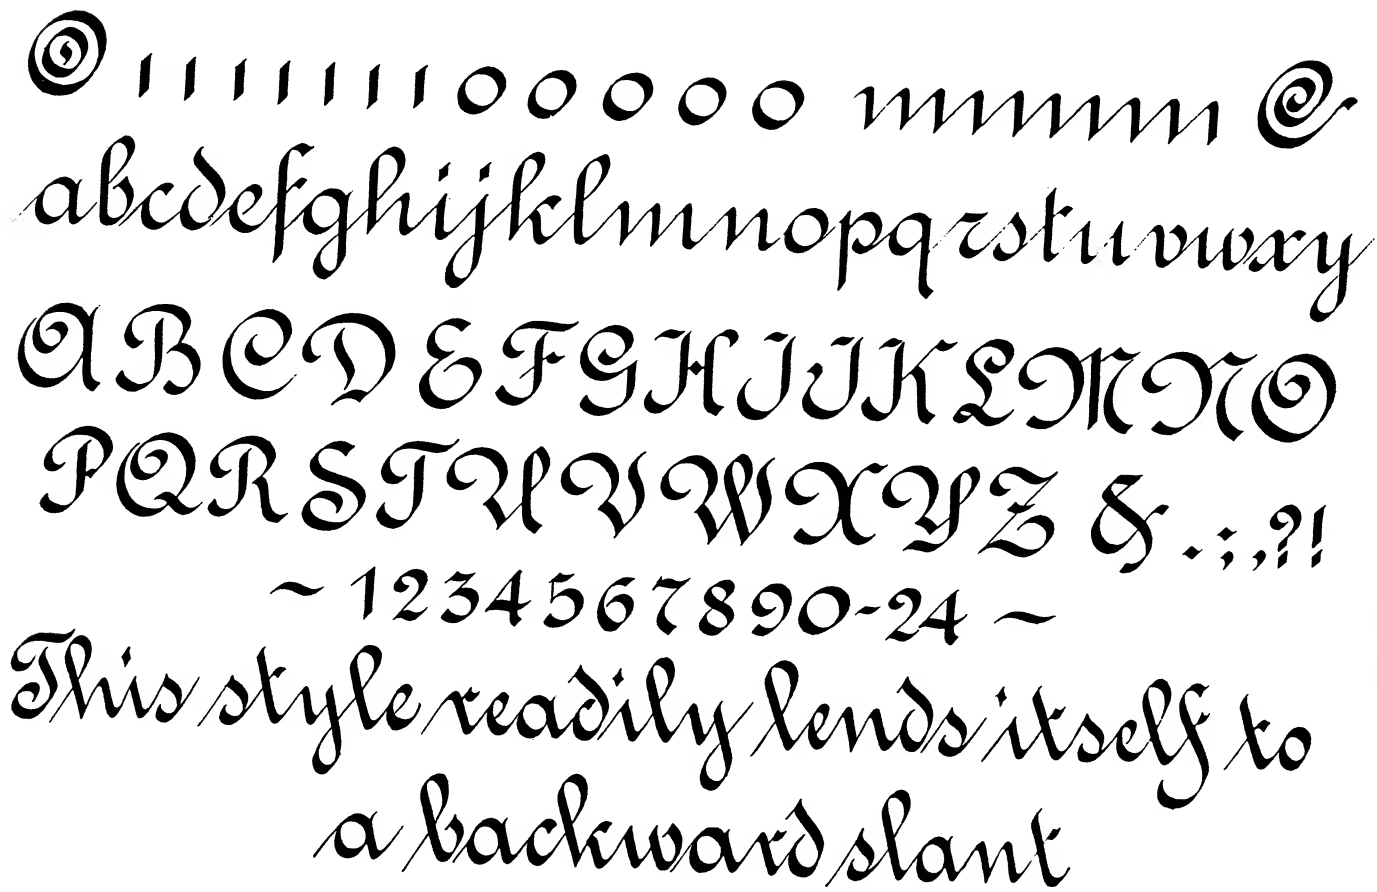 abcdefghijklmnopqrstuvwxy
ABCDEFGHIJKLMNO
PQRSTUVWXYZ & . ; , ? !
~ 1234567890-24 ~
This style readily lends itself to
a backward slant